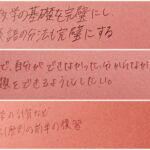 学の基礎を完璧にし、
語の分法も完璧にする
で、自分ができなかった、分からなかった
題をできるようにしたい。
学の計算など
の前半の復習